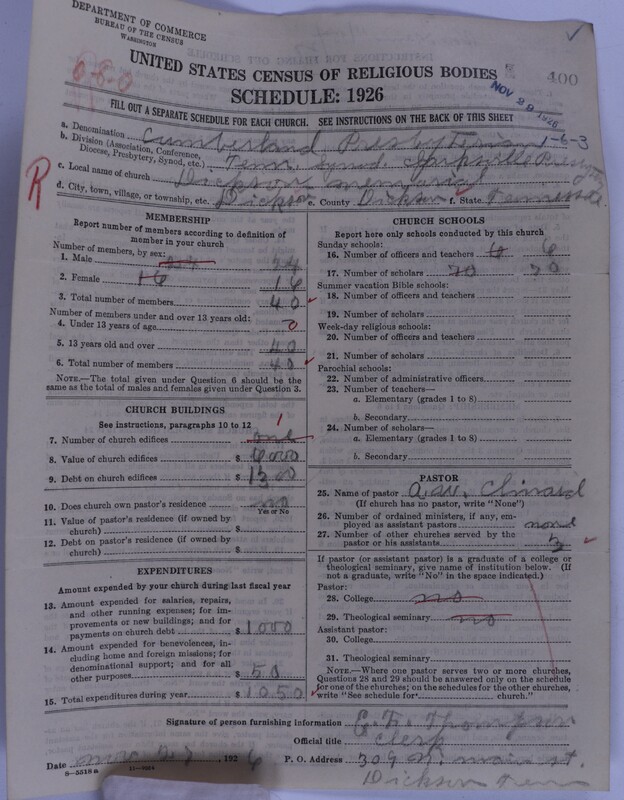 DEPARTMENT OF COMMERCE
BUREAU OF THE CENSUS
WASHINGTON
680
400
UNITED STATES CENSUS OF RELIGIOUS BODIES
SCHEDULE: 1926
NOV 29 1926
FILL OUT A SEPARATE SCHEDULE FOR EACH CHURCH. SEE INSTRUCTIONS ON THE BACK OF THIS SHEET
1-6-3
a. Denomination Cumberland Presbyterian
b. Division (Association, Conference, Diocese, Presbytery, Synod, etc.) Tenn. Synod. Clarksville Presbytery
R
c. Local name of church Dickson memorial
d. City, town, village, or township, etc. Dickson e. County Dickson f. State Tennessee
MEMBERSHIP
Report number of members according to definition of
member in your church
Number of members, by sex:
1. Male 24 24
2. Female 16 16
3. Total number of members 40
Number of members under and over 13 years old:
4. Under 13 years of age 0
5. 13 years old and over 40
6. Total number of members 40
NOTE.—The total given under Question 6 should be
the same as the total of males and females given under Question 3.
CHURCH BUILDINGS
See instructions, paragraphs 10 to 12
1
7. Number of church edifices one
8. Value of church edifices $ 6000
9. Debt on church edifices $ 1300
10. Does church own pastor's residence? no
Yes or No
11. Value of pastor's residence (if owned by
church) $
12. Debt on pastor's residence (if owned by
church) $
EXPENDITURES
Amount expended by your church during last fiscal year
13. Amount expended for salaries, repairs,
and other running expenses; for im-
provements or new buildings; and for
payments on church debt $ 1000
14. Amount expended for benevolences, in-
cluding home and foreign missions; for
denominational support; and for all
other purposes $ 50
15. Total expenditures during year $ 1050
CHURCH SCHOOLS
Report here only schools conducted by this church
Sunday schools:
16. Number of officers and teachers 6 6
17. Number of scholars 70 70
Summer vacation Bible schools:
18. Number of officers and teachers
19. Number of scholars
Week-day religious schools:
20. Number of officers and teachers
21. Number of scholars
Parochial schools:
22. Number of administrative officers
23. Number of teachers—
a. Elementary (grades 1 to 8)
b. Secondary
24. Number of scholars—
a. Elementary (grades 1 to 8)
b. Secondary
PASTOR
25. Name of pastor A. W. Clinard
(If church has no pastor, write "None")
26. Number of ordained ministers, if any, em-
ployed as assistant pastors none
27. Number of other churches served by the
pastor or his assistants 3
If pastor (or assistant pastor) is a graduate of a college or
theological seminary, give name of institution below. (If
not a graduate, write "No" in the space indicated.)
Pastor:
28. College no
29. Theological seminary no
Assistant pastor:
30. College
31. Theological seminary
NOTE.—Where one pastor serves two or more churches,
Questions 28 and 29 should be answered only on the schedule
for one of the churches; on the schedules for the other churches,
write "See schedule for church."
Signature of person furnishing information Thompson
Official title Clerk
Date 1926 P. O. Address 309 N. main st.
8-5318 a 11-9104 Dickson Tenn